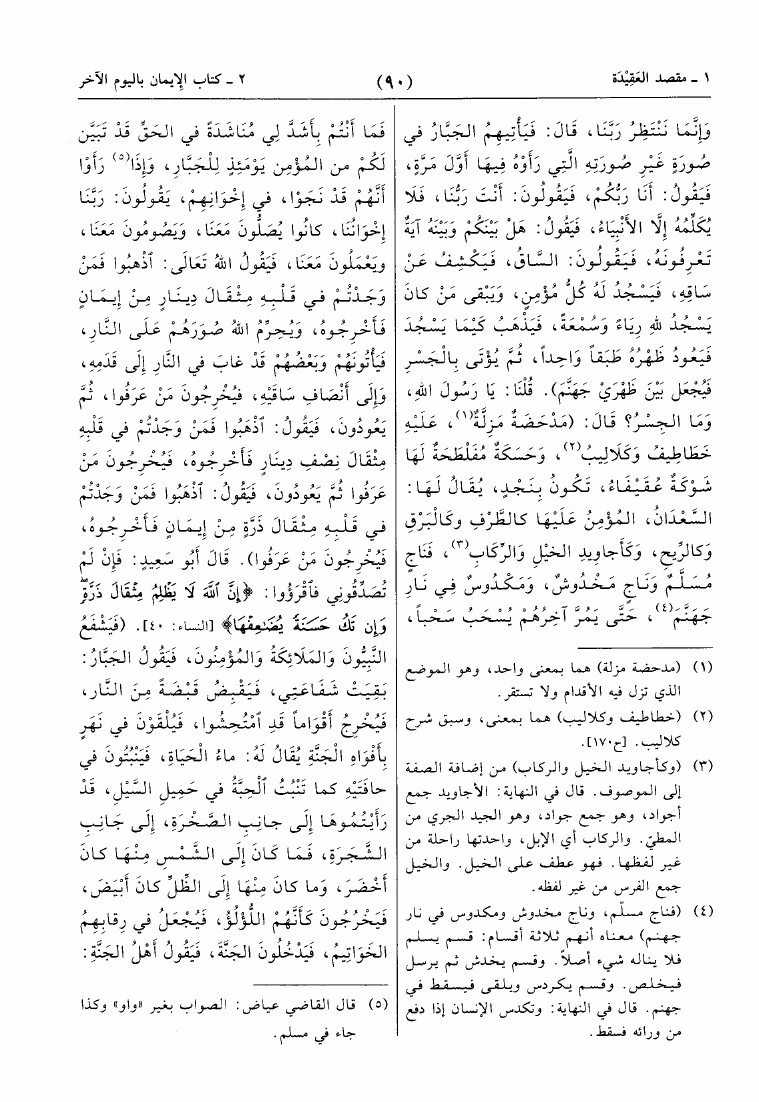 ١ ـ مقصد العَقِيْدَة
(٩٠)
٢ ـ كتاب الإيمان باليوم الآخر
وَإِنَّمَا نَنْتَظِرُ رَبَّنَا، قَالَ: فَيَأْتِيهِمُ الجَبَّارُ في
صُورَةٍ غَيْرِ صُورَتِهِ الَّتِي رَأَوْهُ فِيهَا أَوَّلَ مَرَّةٍ،
فَيَقُولُ: أَنَا رَبُّكُمْ، فَيَقُولُونَ: أَنْتَ رَبُّنَا، فَلَا
يُكَلِّمُهُ إِلَّا الأَنْبِيَاءُ، فَيَقُولُ: هَلْ بَيْنَكُمْ وَبَيْنَهُ آيَةٌ
تَعْرِفُونَهُ، فَيَقُولُونَ: السَّاقُ، فَيَكْشِفُ عَنْ
سَاقِهِ، فَيَسْجُدُ لَهُ كُلُّ مُؤْمِنٍ، وَيَبْقى مَنْ كانَ
يَسْجُدُ للهِ رِيَاءً وَسُمْعَةً، فَيَذْهَبُ كَيْمَا يَسْجُدَ
فَيَعُودُ ظَهْرُهُ طَبَقاً وَاحِداً، ثُمَّ يُؤْتَى بِالْجَسْرِ
فَيُجْعَل بَيْنَ ظَهْرَيْ جَهَنَّم). قُلْنَا: يَا رَسُولَ اللهِ،
وَمَا الجِسْرُ؟ قَالَ: (مَدْحَضَةٌ مَزِلَّةٌ(١)، عَلَيْهِ
خَطَاطِيفُ وَكَلَالِيبُ(٢)، وَحَسَكَةٌ مُفَلْطَحَةٌ لَهَا
شَوْكَةٌ عُقَيْفَاءُ، تَكُونُ بِنَجْدٍ، يُقَالُ لَهَا:
السَّعْدَانُ، المُؤْمِنُ عَلَيْهَا كالطَّرْفِ وكَالْبَرْقِ
وَكالرِّيحِ، وَكَأَجاوِيدِ الخَيْلِ وَالرِّكابِ(٣)، فَنَاجٍ
مُسَلَّمٌ وَنَاجٍ مَخْدُوشٌ، وَمَكْدُوسٌ فِي نَارِ
جَهَنَّمَ(٤)، حَتَّى يَمُرَّ آخِرُهُمْ يُسْحَبُ سَحْباً،
(١) (مدحضة مزلة) هما بمعنى واحد، وهو الموضع
الذي تزل فيه الأقدام ولا تستقر.
(٢) (خطاطيف وكلاليب) هما بمعنى، وسبق شرح
كلاليب. [ح١٧٠].
(٣) (وكأجاويد الخيل والركاب) من إضافة الصفة
إلى الموصوف. قال في النهاية: الأجاويد جمع
أجواد، وهو جمع جواد، وهو الجيد الجري من
المطيّ. والركاب أي الإبل، واحدتها راحلة من
غير لفظها. فهو عطف على الخيل. والخيل
جمع الفرس من غير لفظه.
(٤) (فناج مسلّم، وناج مخدوش ومكدوس في نار
جهنم) معناه أنهم ثلاثة أقسام: قسم يسلم
فلا يناله شيء أصلاً. وقسم يخدش ثم يرسل
فيخلص. وقسم يكردس ويلقى فيسقط في
جهنم. قال في النهاية: وتكدس الإنسان إذا دفع
من ورائه فسقط.
فَمَا أَنْتُمْ بِأَشَدَّ لِي مُنَاشَدَةً في الحَقِّ قَدْ تَبَيَّنَ
لَكُمْ من المُؤْمِنِ يَوْمَئِذٍ لِلْجَبَّارِ، وَإِذَا(٥) رَأَوْا
أَنَّهُمْ قَدْ نَجَوْا، في إِخْوَانِهِمْ، يَقُولُونَ: رَبَّنَا
إِخْوَانُنَا، كانُوا يُصَلُّونَ مَعَنَا، وَيَصُومُونَ مَعَنَا،
ويَعْمَلُونَ مَعَنَا، فَيَقُولُ اللهُ تَعَالَى: ٱذْهَبُوا فَمَنْ
وَجَدْتُمْ في قَلْبِهِ مِثْقَالَ دِينَارٍ مِنْ إِيمَانٍ
فَأَخْرِجُوهُ، وَيُحرِّمُ اللهُ صُوَرَهُمْ عَلَى النَّارِ،
فَيَأْتُونَهُمْ وَبَعْضُهُمْ قَدْ غابَ في النَّارِ إِلَى قَدَمِهِ،
وَإِلَى أَنْصَافِ سَاقَيْهِ، فَيُخْرِجُونَ مَنْ عَرَفُوا، ثُمَّ
يَعُودُونَ، فَيَقُولُ: ٱذْهَبُوا فَمَنْ وَجَدْتُمْ في قَلْبِهِ
مِثْقَالَ نِصْفِ دِينَارٍ فَأَخْرِجُوهُ، فَيُخْرِجُونَ مَنْ
عَرَفُوا ثُمَّ يَعُودُونَ، فَيَقُولُ: ٱذْهَبُوا فَمَنْ وَجَدْتُمْ
في قَلْبِهِ مِثْقَالَ ذَرَّةٍ مِنْ إِيمَانٍ فَأَخْرِجُوهُ،
فَيُخْرِجُونَ مَنْ عَرَفُوا). قَالَ أَبُو سَعِيدٍ: فَإِنْ لَمْ
تُصَدِّقُونِي فَٱقْرَؤُوا: ﴿إِنَّ ٱللَّهَ لَا يَظْلِمُ مِثْقَالَ ذَرَّةٍ
وَإِن تَكُ حَسَنَةً يُضَٰعِفْهَا﴾ [النساء: ٤٠]. (فَيَشْفَعُ
النَّبِيُّونَ وَالمَلَائِكَةُ وَالمُؤْمِنُونَ، فَيَقُولُ الجَبَّارُ:
بَقِيَتْ شَفَاعَتِي، فَيَقْبِضُ قَبْضَةً مِنَ النَّارِ،
فَيُخْرِجُ أَقْوَاماً قَدِ ٱمْتُحِشُوا، فَيُلْقَوْنَ في نَهَرٍ
بِأَفْوَاهِ الجَنَّةِ يُقَالُ لَهُ: ماءُ الحَيَاةِ، فَيَنْبُتُونَ في
حافَتَيْهِ كما تَنْبُتُ ٱلْحِبَّةُ في حَمِيلِ السَّيْلِ، قَدْ
رَأَيْتُمُوهَا إِلَى جانِبِ الصَّخْرَةِ، إِلَى جَانِبِ
الشَّجَرَةِ، فَمَا كَانَ إِلَى الشَّمْسِ مِنْهَا كانَ
أَخْضَرَ، وَما كانَ مِنْهَا إِلَى الظِّلِّ كانَ أَبْيَضَ،
فَيَخْرُجُونَ كَأَنَّهُمُ اللُّؤْلُؤُ، فَيُجْعَلُ في رِقابِهِمُ
الخَوَاتِيمُ، فَيَدْخُلُونَ الجَنَّةَ، فَيَقُولُ أَهْلُ الجَنَّةِ:
(٥) قال القاضي عياض: الصواب بغير «واو» وكذا
جاء في مسلم.